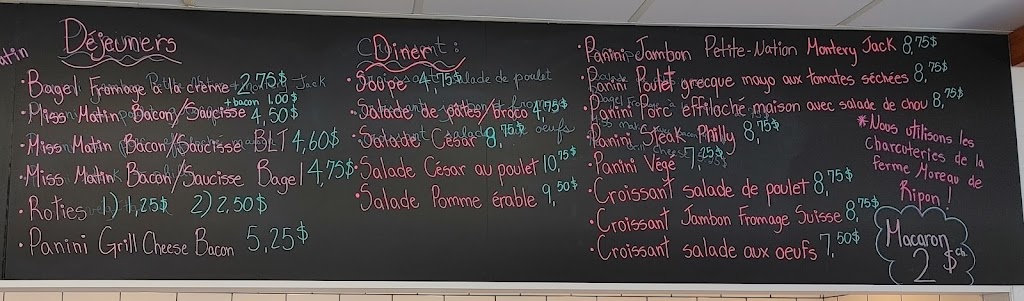 atin
Déjeuners
• Bagel Fromage à la crème 2,75$
+bacon 1.00$
• Miss Matin Bacon/Saucisse 4,50$
• Miss Matin Bacon/Saucisse BLT 4,60$
• Miss Matin Bacon/Saucisse Bagel 4,75$
• Roties 1) 1,25$ 2) 2,50$
• Panini Grill Cheese Bacon 5,25$
Diner
• Soupe 4,75$
• Salade de pâtes/broco 4,75$
• Salade César 8,75$
• Salade César au poulet 10,75$
• Salade Pomme érable 9,50$
• Panini Jambon Petite-Nation Montery Jack 8,75$
• Panini Poulet grecque mayo aux tomates séchées 8,75$
• Panini Porc effiloché maison avec salade de chou 8,75$
• Panini Steak Philly 8,75$
• Panini Végé 7,25$
• Croissant salade de poulet 8,75$
• Croissant Jambon Fromage Suisse 8,75$
• Croissant salade aux oeufs 7,50$
*Nous utilisons les
Charcuteries de la
ferme Moreau de
Ripon !
Macaron
2$ ch.